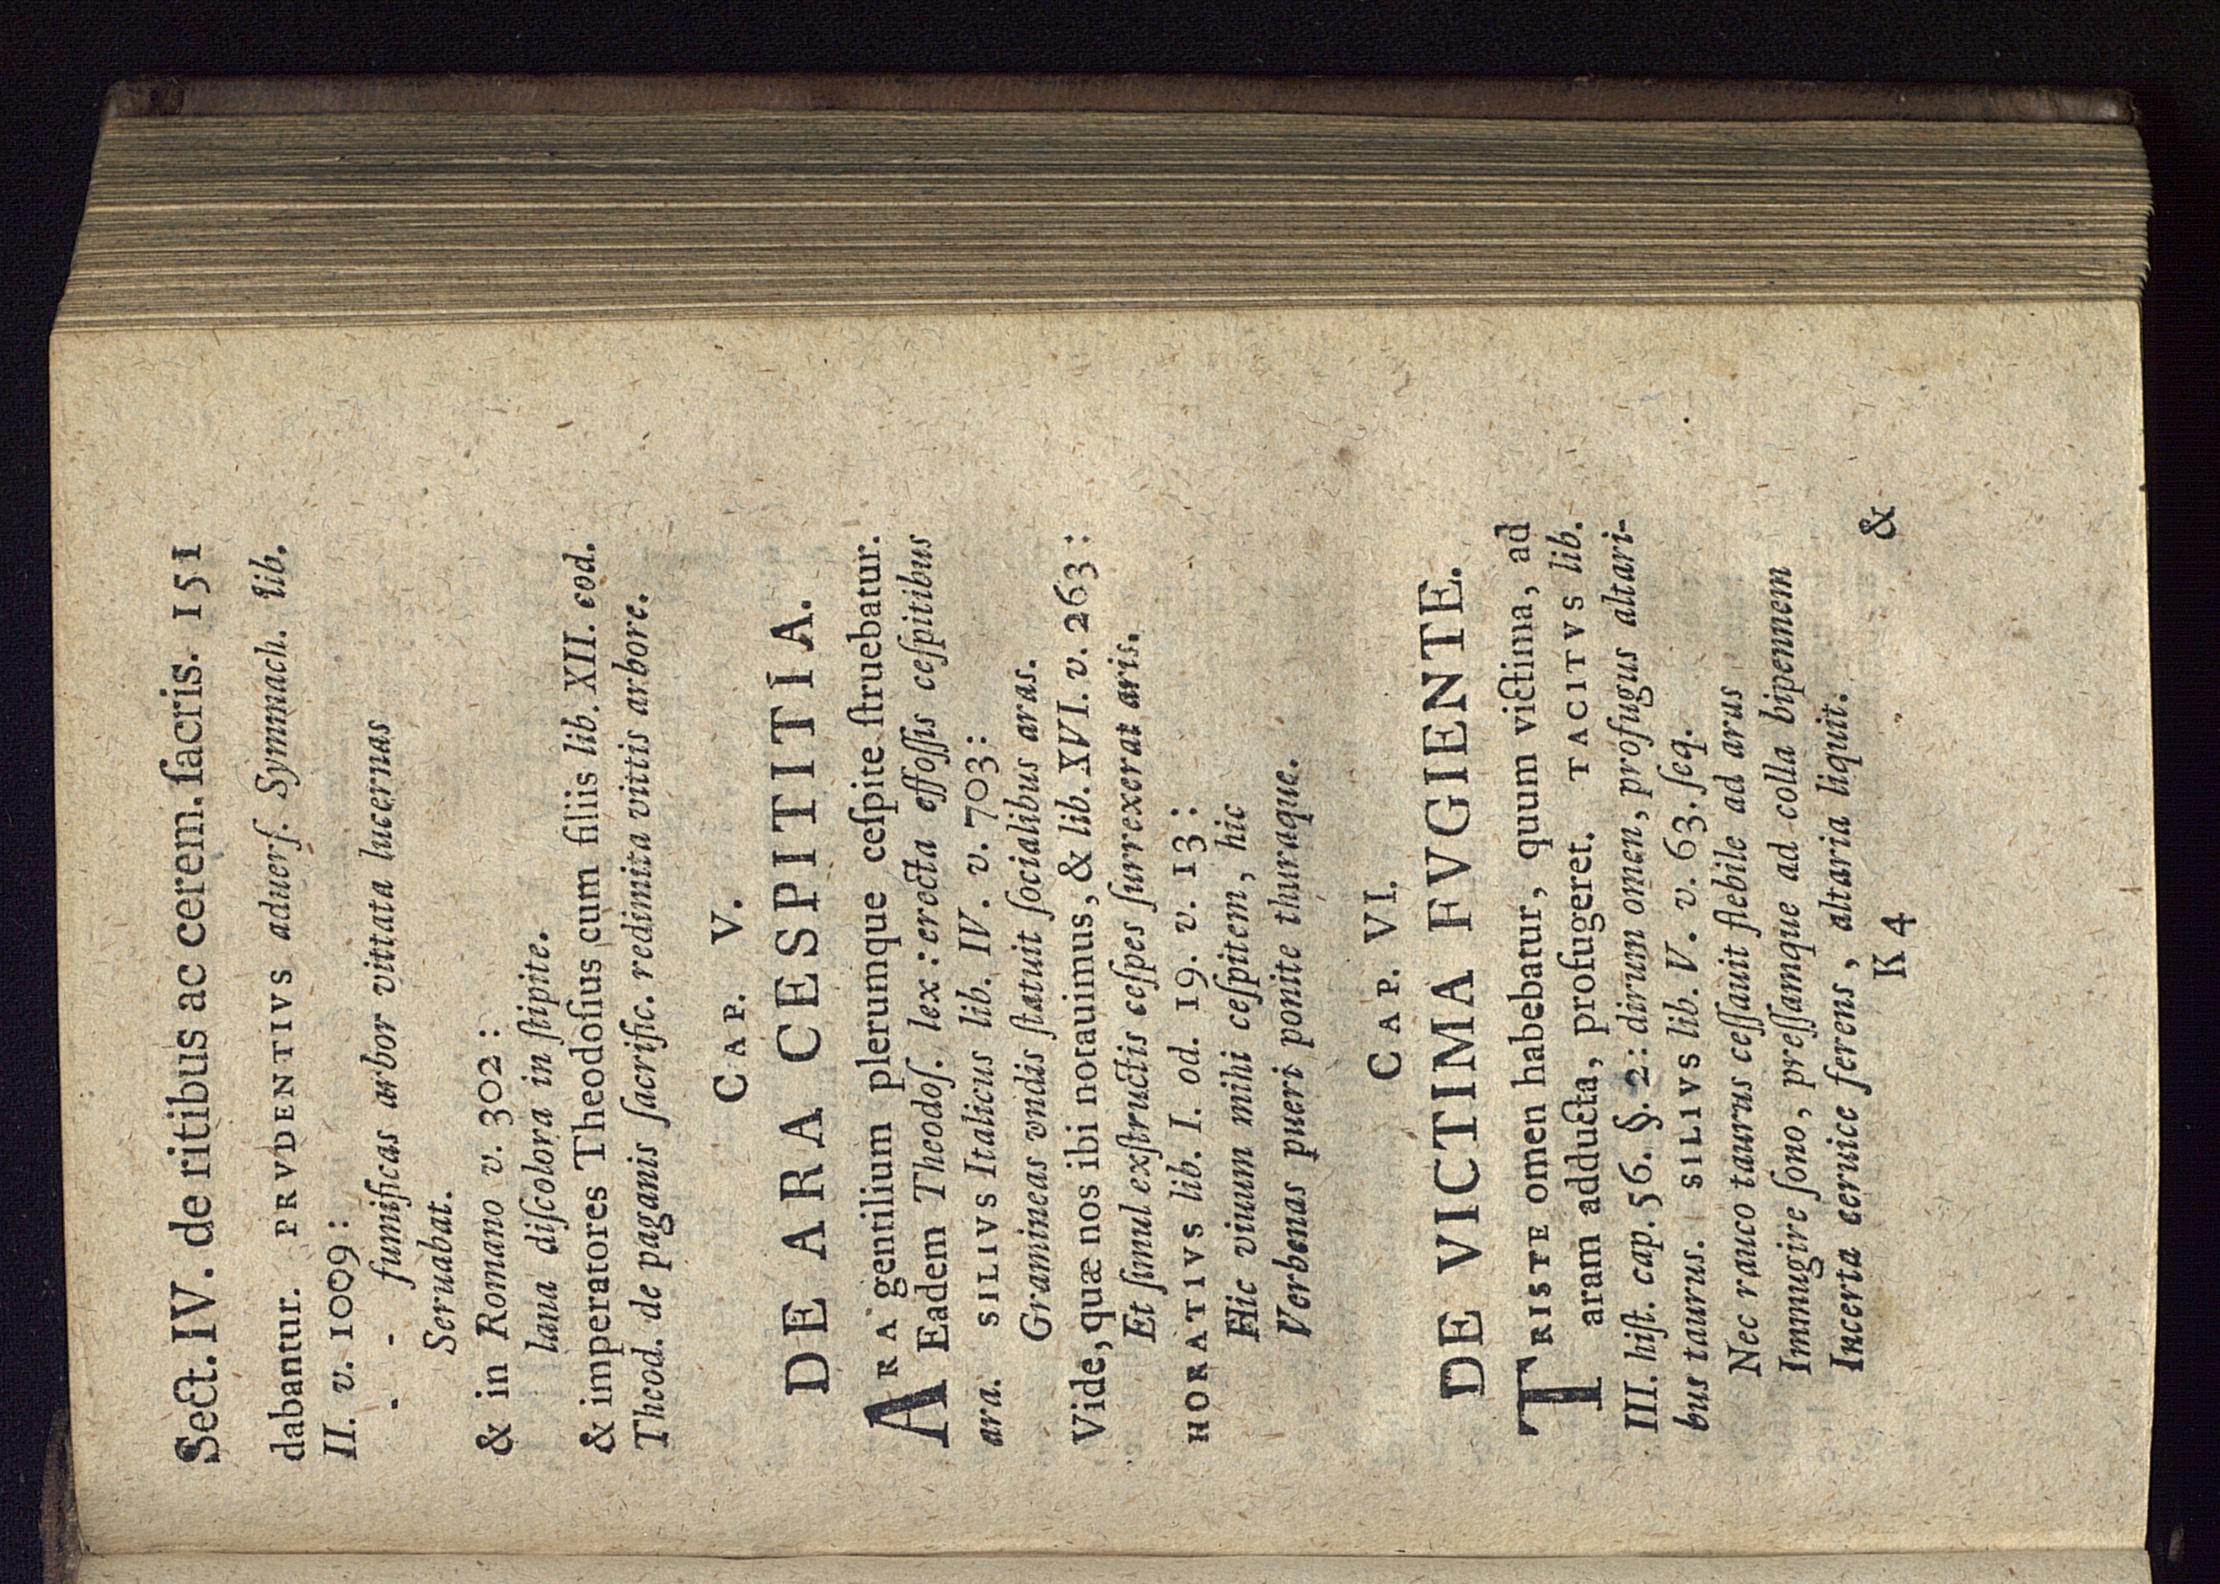 Sect. IV. de ritibus ac cerem. ſacris. 151
dabantur. PRVDENTIVS aduerſ. Symmach. lib.
II. v. 1009:
- - fumificas arbor vittata lucernas
Seruabat.
& in Romano v. 302:
lana diſcolora in ſtipite.
& imperatores Theodoſius cum filiis lib. XII. cod.
Theod. de paganis ſacrific. redimita vittis arbore.
CAP. V.
DE ARA CESPITITIA.
ARA gentilium plerumque ceſpite ſtruebatur.
Eadem Theodoſ. lex: erecta effoſſis ceſpitibus
ara. SILIVS Italicus lib. IV. v. 703:
Gramineas vndis ſtatuit ſocialibus aras.
Vide, quæ nos ibi notauimus, & lib. XVI. v. 263:
Et ſimul exſtructis ceſpes ſurrexerat aris.
HORATIVS lib. I. od. 19. v. 13:
Hic viuum mihi ceſpitem, hic
Verbenas pueri ponite thuraque.
CAP. VI.
DE VICTIMA FVGIENTE.
TRISTE omen habebatur, quum victima, ad
aram adducta, profugeret. TACITVS lib.
III. hiſt. cap. 56. §. 2: dirum omen, profugus altari-
bus taurus. SILIVS lib. V. v. 63. ſeq.
Nec rauco taurus ceſſauit flebile ad arus
Immugire ſono, preſſamque ad colla bipennem
Incerta ceruice ferens, altaria liquit.
K 4 &